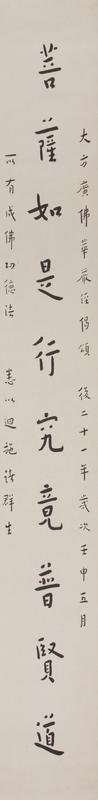 大方廣佛華嚴經偈頌 後二十一年歲次壬申五月
菩薩如是行究竟普賢道
以有成佛功德法 悉以迴施諸群生